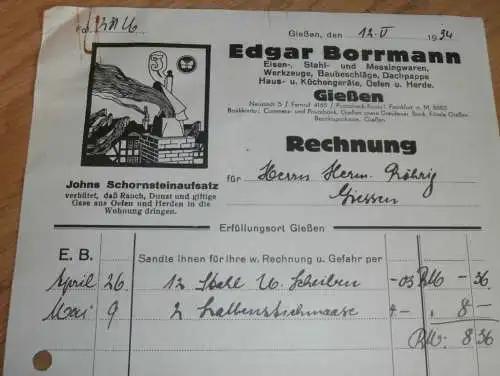 Gießen, den 12. V 1934
Edgar Borrmann
Eisen-, Stahl- und Messingwaren,
Werkzeuge, Baubeschläge, Dachpappe
Haus- u. Küchengeräte, Oefen u. Herde.
Gießen
Neustadt 5 / Fernruf 4165 / Postscheck-Konto: Frankfurt a. M. 6665
Bankkonto: Commerz- und Privatbank, Gießen Dresdner Bank, Filiale Gießen
Bezirkssparkasse, Gießen
Rechnung
für Herrn Herm. Röhrig
Giessen
Johns Schornsteinaufsatz
verhütet, daß Rauch, Dunst und giftige
Gase aus Oefen und Herden in die
Wohnung dringen.
Erfüllungsort Gießen
E. B. Sandte Ihnen für w. Rechnung u. Gefahr per
April 26 12 Stahl U. Scheiben -03 RM -36
Mai 9 2 4- " 8-
RM. 8 36